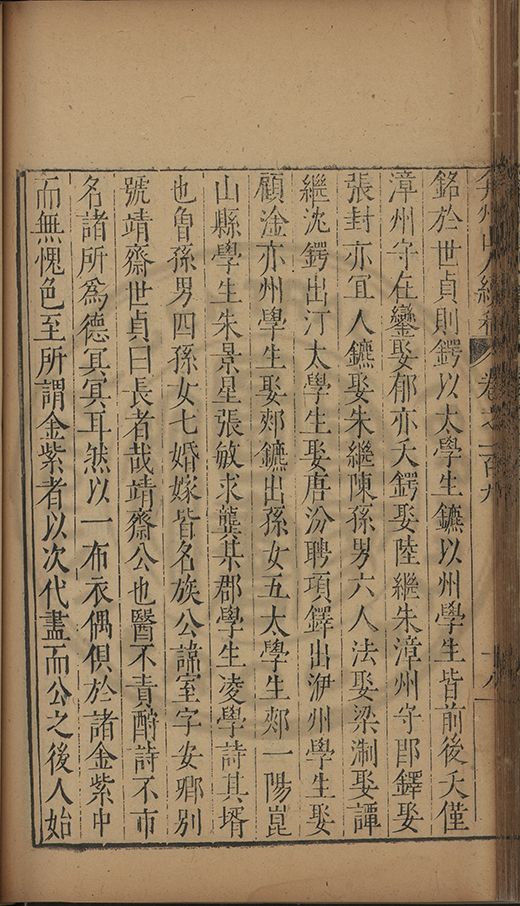 弇州山人續稿 卷之一百九 十八
銘於世貞則鍔以太學生鑣以州學生皆前後夭僅
漳州守在鑾娶郁亦夭鍔娶陸繼朱漳州守即鐸娶
張封亦宜人鑣娶朱繼陳孫男六人法娶梁淛娶譚
繼沈鍔出汀太學生娶唐汾聘項鐸出洢州學生娶
顧淦亦州學生娶郟鑣出孫女五太學生郟一陽崑
山縣學生朱景星張敏求龔某郡學生凌學詩其壻
也曾孫男四孫女七婚嫁皆名族公諱室字安卿別
號靖齋世貞曰長者哉靖齋公也醫不責酧詩不市
名諸所爲德冥冥耳然以一布衣偶俱於諸金紫中
而無愧色至所謂金紫者以次代盡而公之後人始